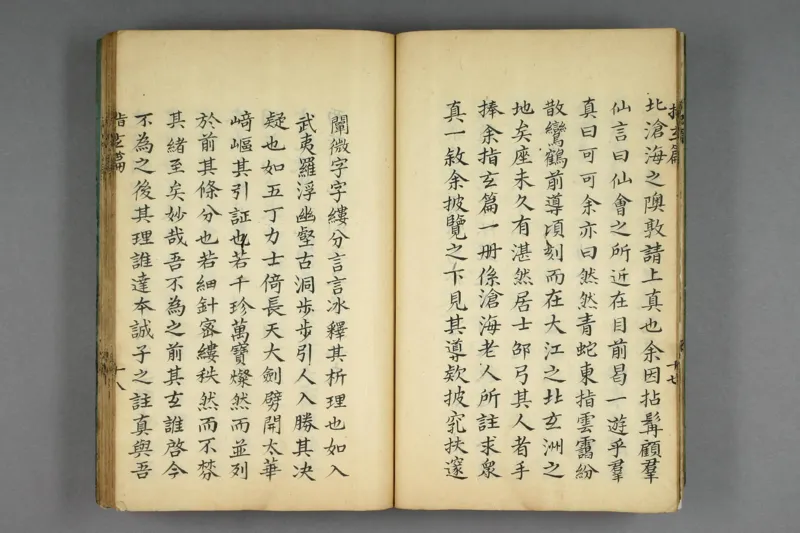 北滄海之隩敦請上真也余因拈髯顧羣
仙言曰仙會之所近在目前曷一遊乎羣
真曰可可余亦曰然然青蛇東指雲靄紛
散鸞鶴前導頃刻而在大江之北玄洲之
地矣座未久有湛然居士邵弓其人者手
捧余指玄篇一册係滄海老人所註求衆
真一敘余披覽之下見其導欵披窾扶邃
闡微字字縷分言言冰釋其析理也如入
武夷羅浮幽壑古洞步步引人入勝其决
疑也如五丁力士倚長天大劍劈開太華
﨑嶇其引証也若千珍萬寶燦然而並列
於前其條分也若細針密縷秩然而不棼
其緒至矣妙哉吾不為之前其玄誰啓今
不為之後其理誰達本誠子之註真與吾
指玄篇
十八